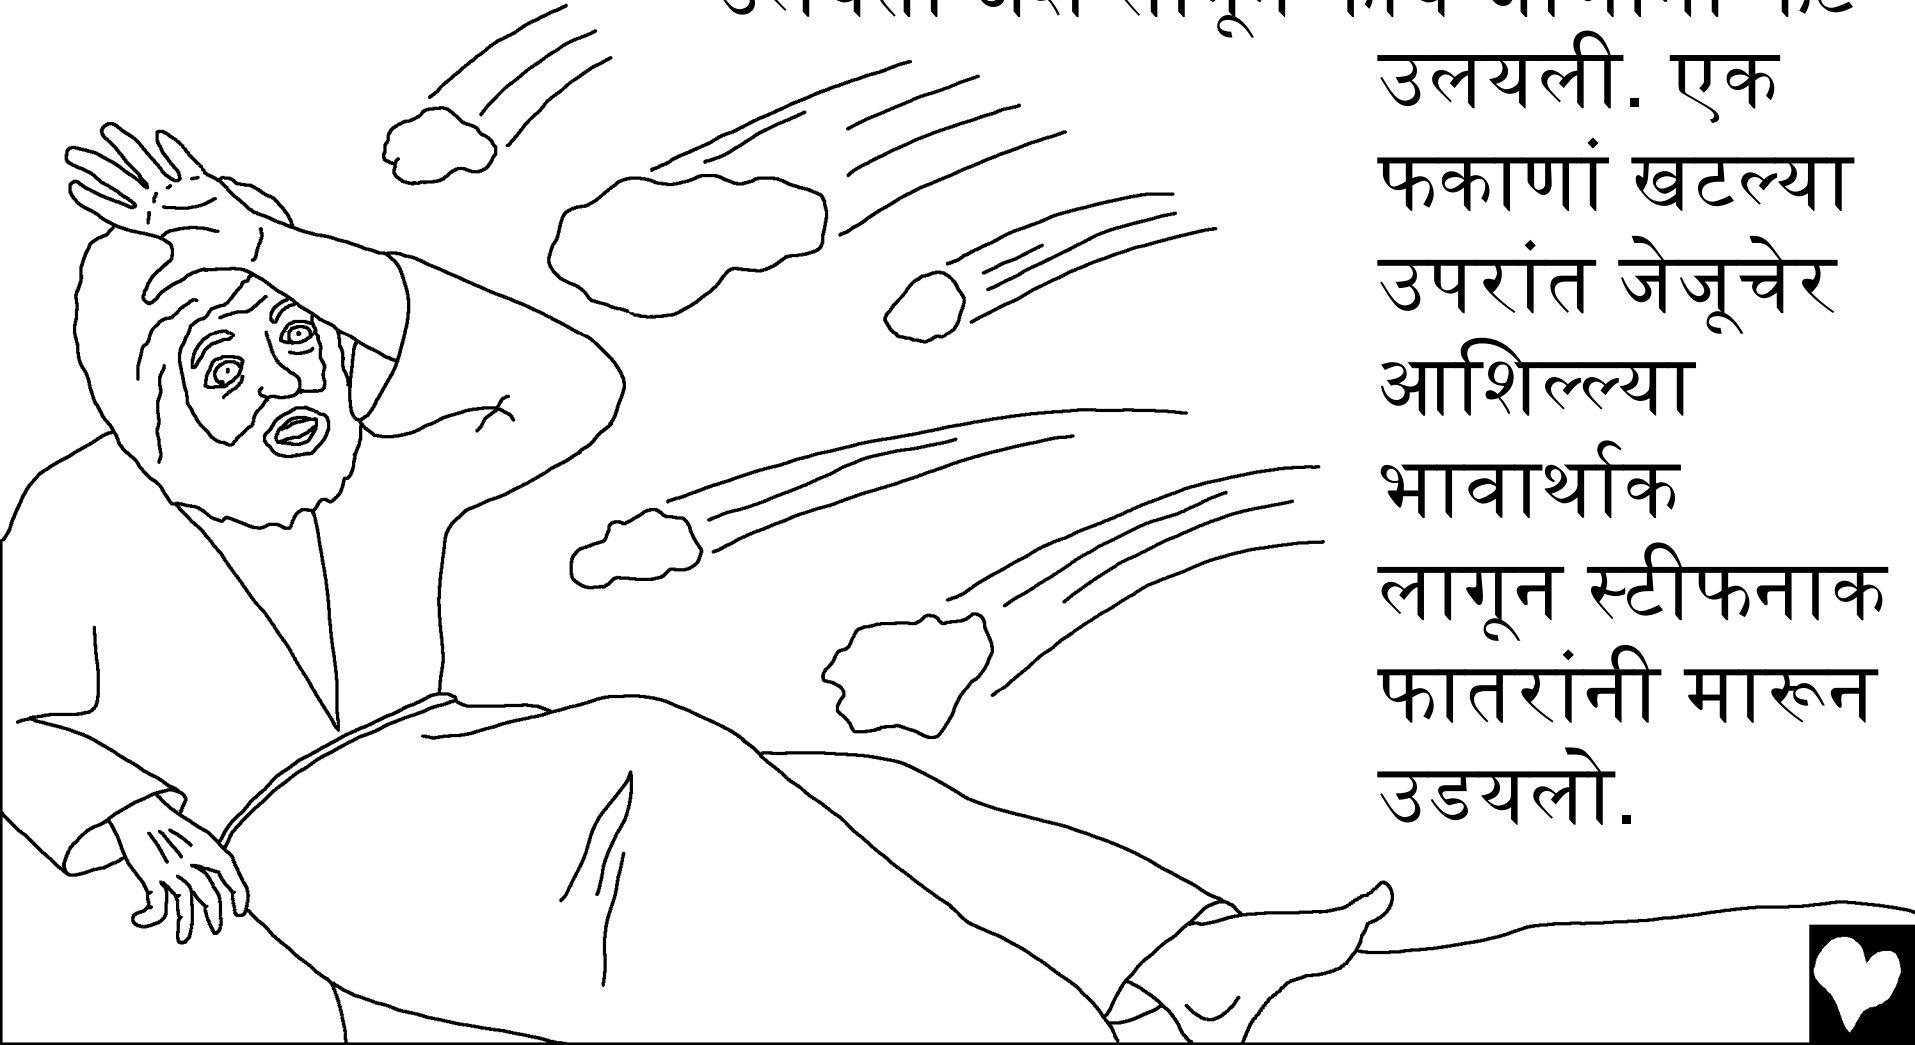 उलयली. एक
फकाणां खटल्या
उपरांत जेजूचेर
आशिल्ल्या
भावार्थाक
लागून स्टीफनाक
फातरांनी मारून
उडयलो.